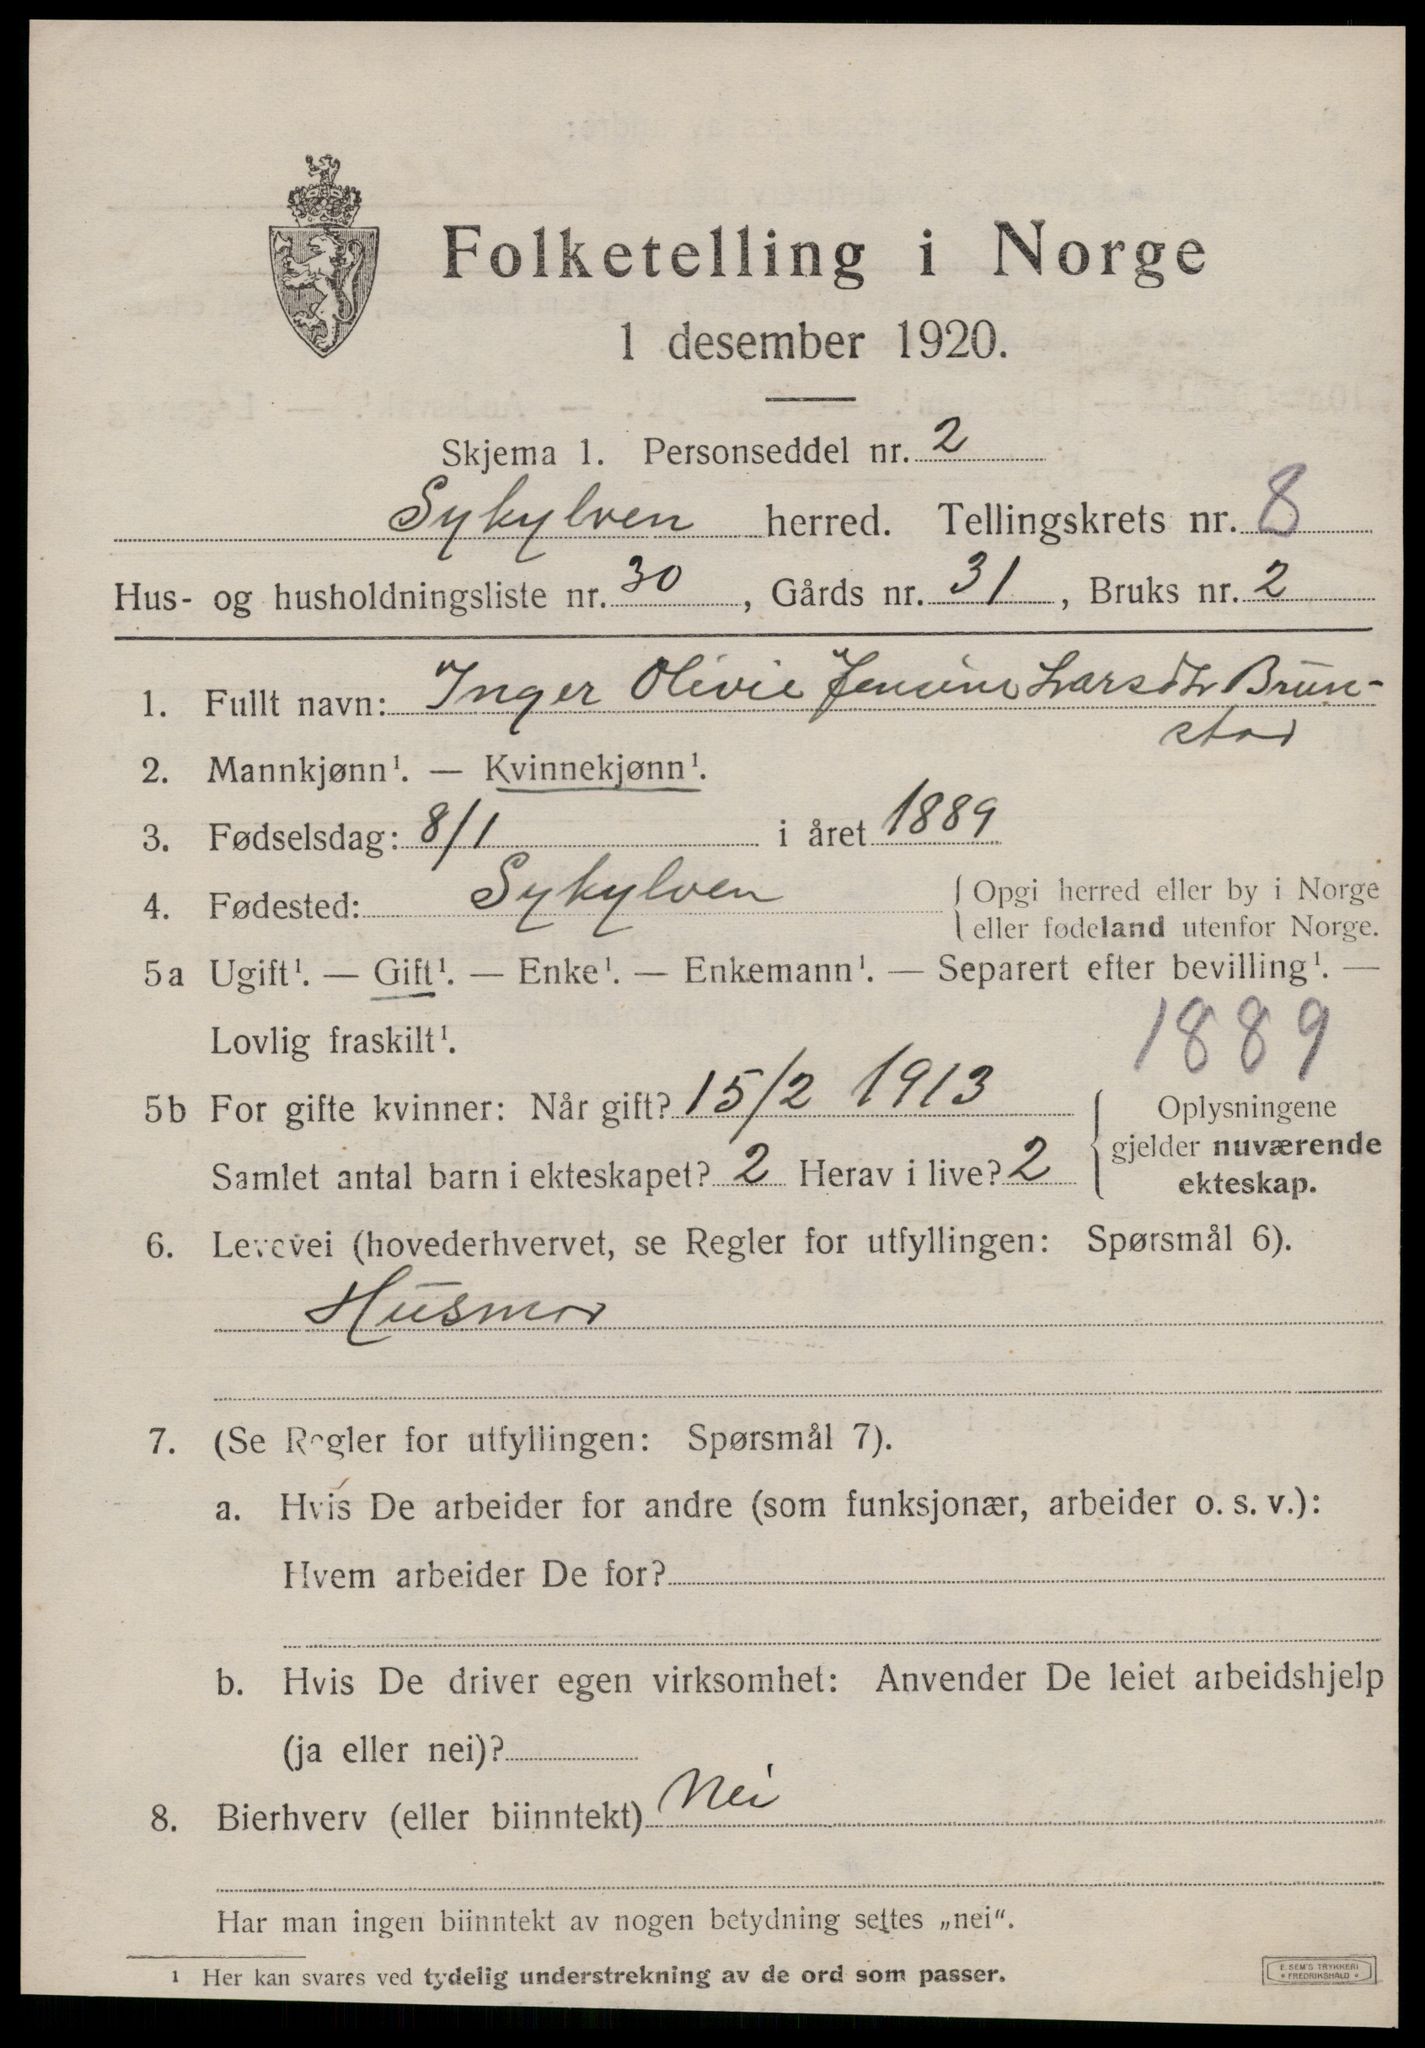 Folketelling i Norge
1 desember 1920.
Skjema 1. Personseddel nr. 2
Sykylven herred. Tellingskrets nr. 8
Hus- og husholdningsliste nr. 30, Gårds nr. 31, Bruks nr. 2
1. Fullt navn: Inger Olivie Jensine Larsdtr Brun-
stad
2. Mannkjønn¹. — Kvinnekjønn¹.
3. Fødselsdag: 8/1 i året 1889
4. Fødested: Sykylven { Opgi herred eller by i Norge
eller fødeland utenfor Norge.
5a Ugift¹. — Gift¹. — Enke¹. — Enkemann¹. — Separert efter bevilling¹. —
Lovlig fraskilt¹.
1889
5b For gifte kvinner: Når gift? 15/2 1913
Samlet antal barn i ekteskapet? 2 Herav i live? 2
{ Oplysningene
gjelder nuværende
ekteskap.
6. Levevei (hovederhvervet, se Regler for utfyllingen: Spørsmål 6).
Husmor
7. (Se Regler for utfyllingen: Spørsmål 7).
a. Hvis De arbeider for andre (som funksjonær, arbeider o. s. v.):
Hvem arbeider De for?
b. Hvis De driver egen virksomhet: Anvender De leiet arbeidshjelp
(ja eller nei)?
8. Bierhverv (eller biinntekt) Nei
Har man ingen biinntekt av nogen betydning settes „nei“.
¹ Her kan svares ved tydelig understrekning av de ord som passer.
E. SEM'S TRYKKERI
* FREDRIKSHALD *